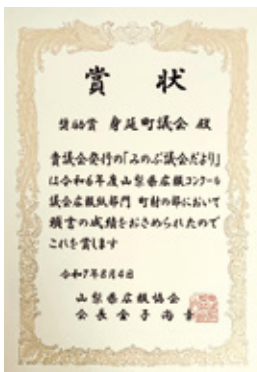 賞状
奨励賞 身延町議会 殿
貴議会発行の「みのぶ議会だより」
は令和6年度山梨県広報コンクール
議会広報紙部門 町村の部において
頭書の成績をおさめられたので
これを賞します
令和7年8月4日
山梨県広報協会
会長 金子